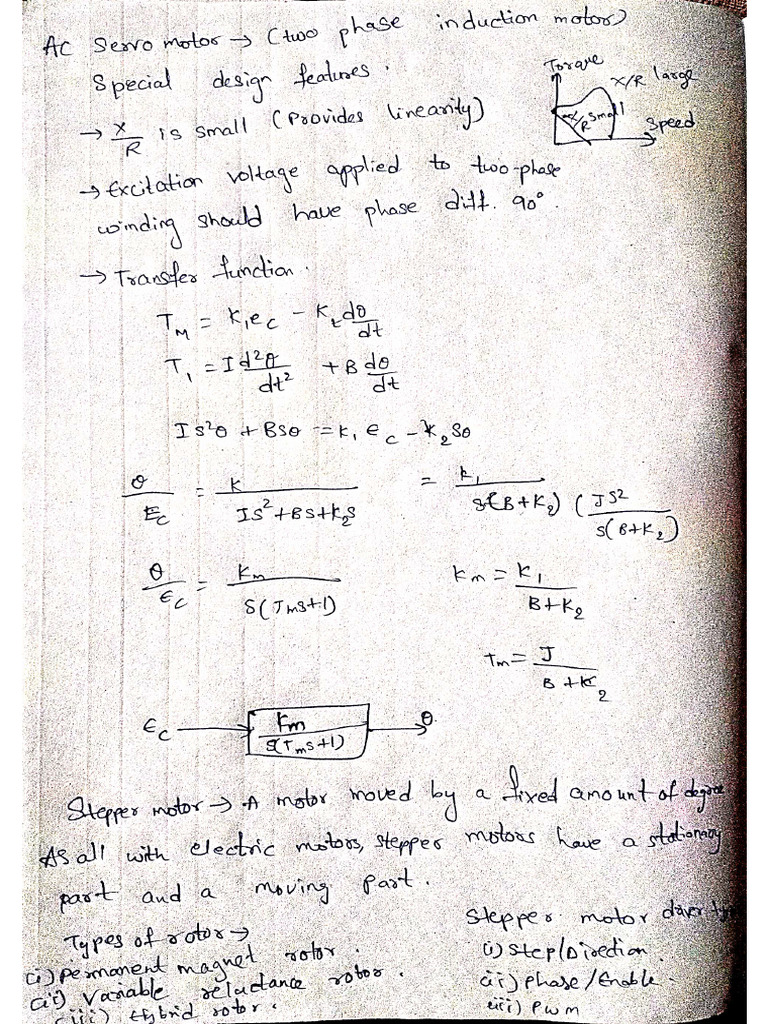 AC Servo motor → (two phase induction motor)
Special design features.
Torque
X/R large
X/R small
Speed
→ X/R is small (Provides linearity)
→ Excitation voltage applied to two-phase
winding should have phase diff. 90°.
→ Transfer function.
T_M = K₁e_C - K_t dθ/dt
T₁ = I d²θ/dt² + B dθ/dt
Is²θ + Bsθ = K₁ e_C - K₂sθ
θ/E_C = K/(Is² + Bs + K₂s) = K₁/(s(B+K₂) (Js²/(s(B+K₂)
θ/E_C = K_m/(s(T_ms+1)) K_m = K₁/(B+K₂)
T_m = J/(B+K₂)
E_C → K_m/(s(T_ms+1)) → θ
Stepper motor → A motor moved by a fixed amount of degree
As all with electric motors, stepper motors have a stationary
part and a moving part.
Types of rotor →
i) permanent magnet rotor.
ii) Variable reluctance rotor.
iii) Hybrid rotor.
Stepper motor driver
i) Step/Direction.
ii) phase/Enable.
iii) PWM